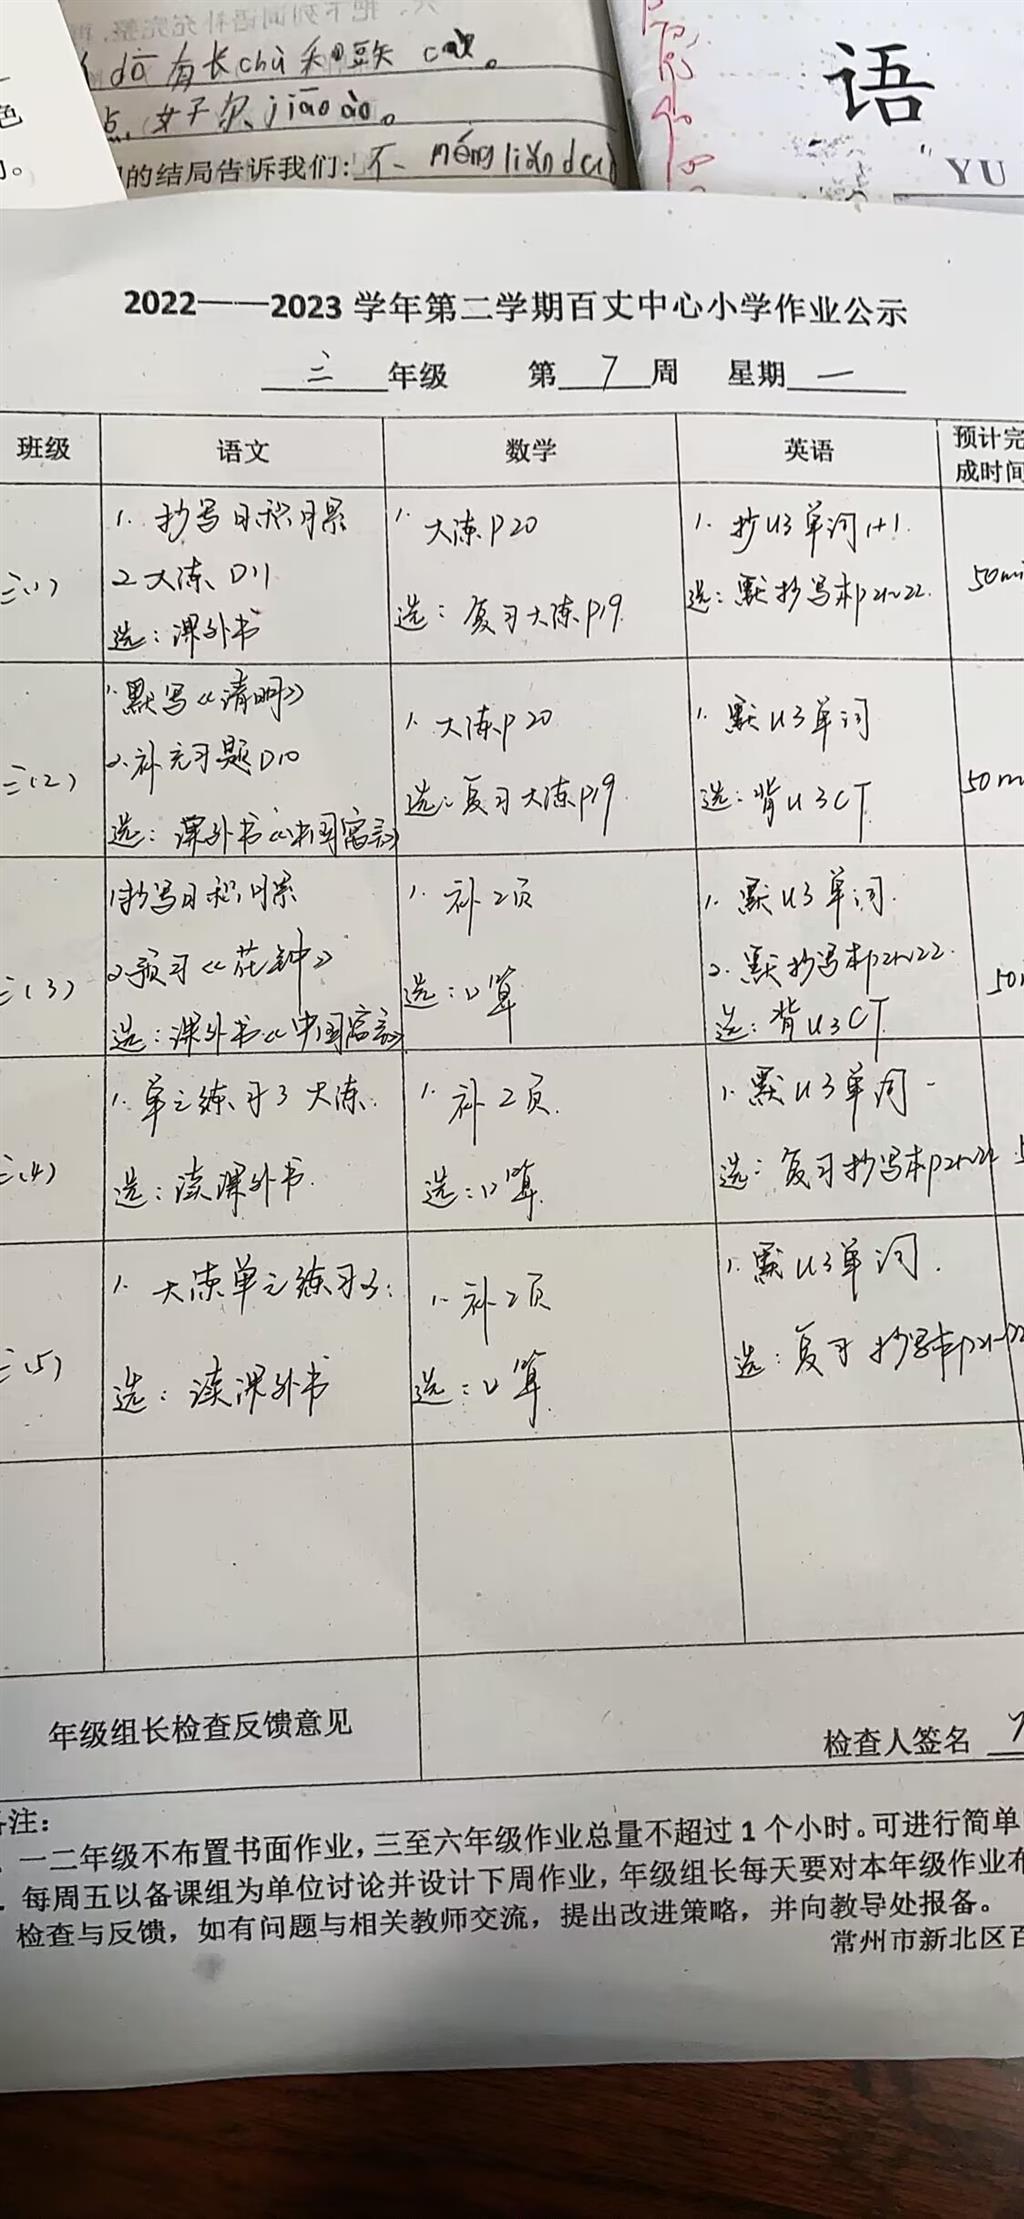 dā有长chù和
点,女子尔jiāo ào。
的结局告诉我们:不
色
语
YU
2022——2023 学年第二学期百丈中心小学作业公示
三 年级 第 7 周 星期 一
班级 语文 数学 英语 预计完
成时间
三(1)
1. 抄写日积月累
2 大练 P11
选:课外书
1. 大练P20
选:复习大练P19.
1. 抄U3单词1+1.
选:默抄写本P21~22.
50mi
三(2)
1.默写《清明》
2.补充习题P10
选:课外书《中国寓言》
1. 大练P20
选:复习大练P19
1. 默U3单词
选:背U3CT
50m
三(3)
1抄写日积月累
2.预习《花钟》
选:课外书《中国寓言》
1. 补2页
选:口算
1. 默U3单词.
2. 默抄写本P21~22.
选:背U3CT
50
三(4)
1. 单元练习3 大练.
选:读课外书.
1. 补2页.
选:口算.
1. 默U3单词
选:复习抄写本P21~22
三(5)
1. 大练单元练习3.
选:读课外书
1. 补2页
选:口算.
1. 默U3单词.
选:复习抄写本P21~22
年级组长检查反馈意见
检查人签名
注:
一二年级不布置书面作业,三至六年级作业总量不超过 1 个小时。可进行简单
每周五以备课组为单位讨论并设计下周作业,年级组长每天要对本年级作业布
检查与反馈,如有问题与相关教师交流,提出改进策略,并向教导处报备。
常州市新北区百